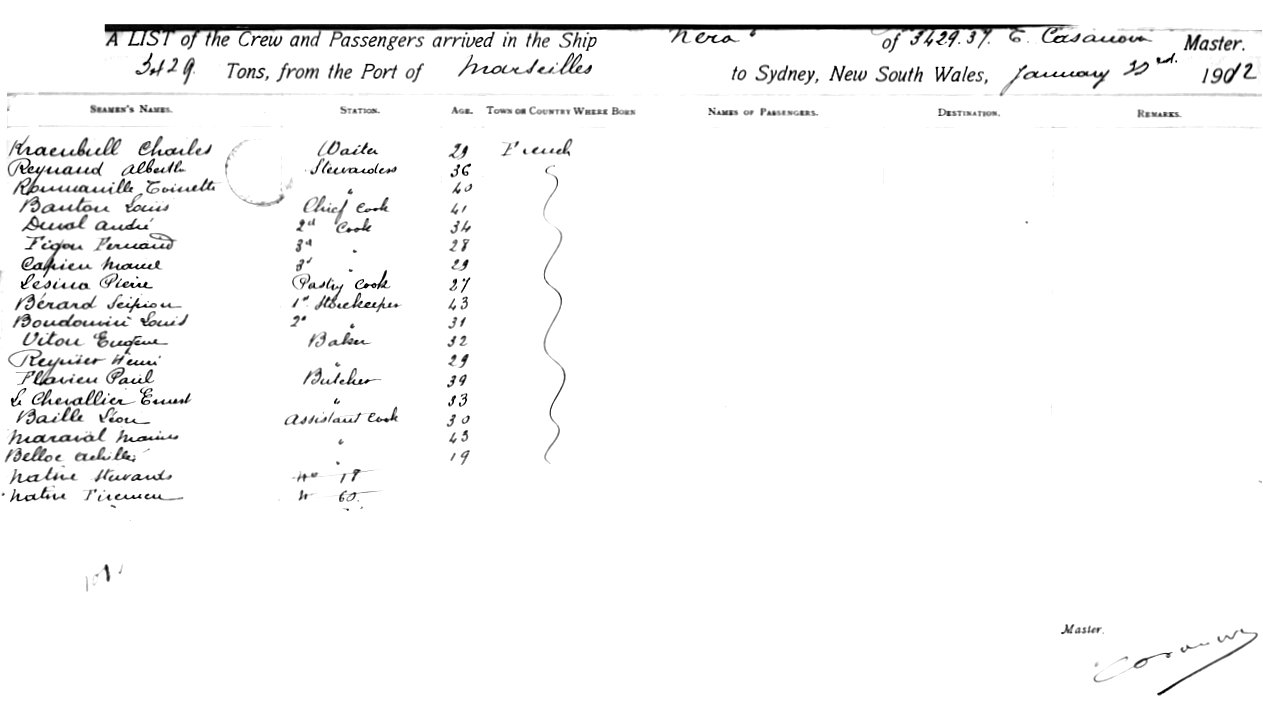 A LIST of the Crew and Passengers arrived in the Ship "Nera" of 3429.37. E. Casanova Master.
3429. Tons, from the Port of Marseilles to Sydney, New South Wales, January rd. 1912
SEAMEN'S NAMES. STATION. AGE. TOWN OR COUNTRY WHERE BORN NAMES OF PASSENGERS. DESTINATION. REMARKS.
Kraenbull Charles Waiter 29 French
Reynaud Alberth Stewardess 36
Roumanille Toinette " 40
Banton Louis Chief Cook 41
Duval André 2d Cook 34
Figon Fernand 3d " 28
Capien Marcel 3d " 29
Lesina Pierre Pastry Cook 27
Bérard Scipion 1st Storekeeper 43
Boudouin Louis 2d " 31
Viton Eugène Baker 32
Reynier Henri " 29
Flavien Paul Butcher 39
Le Chevallier Ernest " 33
Baille Léon Assistant Cook 30
Maraval Marius " 43
Belloc Achille " 19
Native Stewards 18
Native Firemen 60.
Master.
Casanova